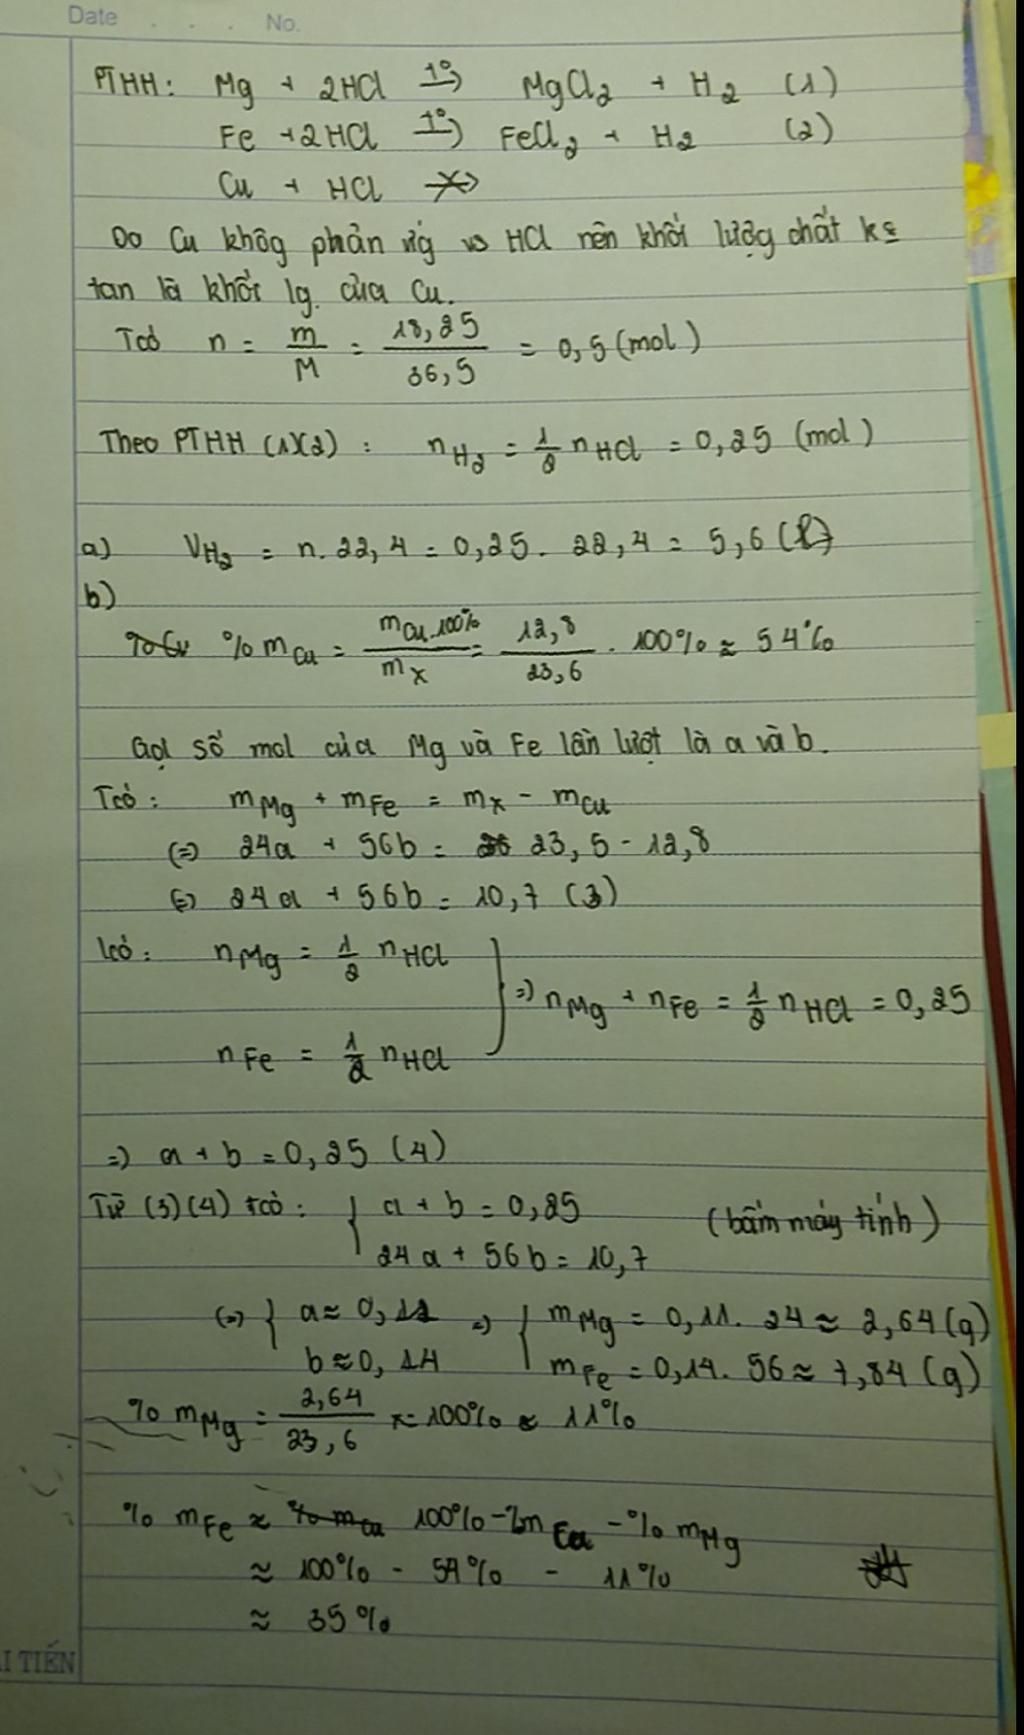 Date . . . No.
PTHH: Mg + 2HCl →t° MgCl2 + H2 (1)
Fe + 2HCl →t° FeCl2 + H2 (2)
Cu + HCl -x->
Do Cu khôg phản ứg vs HCl nên khối lượg chất ko
tan là khối lg của Cu.
Tcó n = m/M = 18,25/36,5 = 0,5 (mol)
Theo PTHH (1)(2) : nH2 = 1/2 nHCl = 0,25 (mol)
a) VH2 = n. 22,4 = 0,25. 22,4 = 5,6 (l)
b)
% mCu = mCu.100%/mX = 12,8/23,6 . 100% ≈ 54%
Gọi số mol của Mg và Fe lần lượt là a và b.
Tcó : mMg + mFe = mX - mCu
(=) 24a + 56b = 23,5 - 12,8
(=) 24a + 56b = 10,7 (3)
tcó : nMg = 1/2 nHCl
nFe = 1/2 nHCl
=) nMg + nFe = 1/2 nHCl = 0,25
=) a + b = 0,25 (4)
Từ (3)(4) tcó : { a + b = 0,25 (bấm máy tính)
24a + 56b = 10,7
(=) { a ≈ 0,11 =) { mMg = 0,11. 24 ≈ 2,64 (g)
b ≈ 0,14 mFe = 0,14. 56 ≈ 7,84 (g)
% mMg = 2,64/23,6 × 100% ≈ 11%
% mFe ≈ 100% - %mCu - % mMg
≈ 100% - 54% - 11%
≈ 35%
I TIẾN